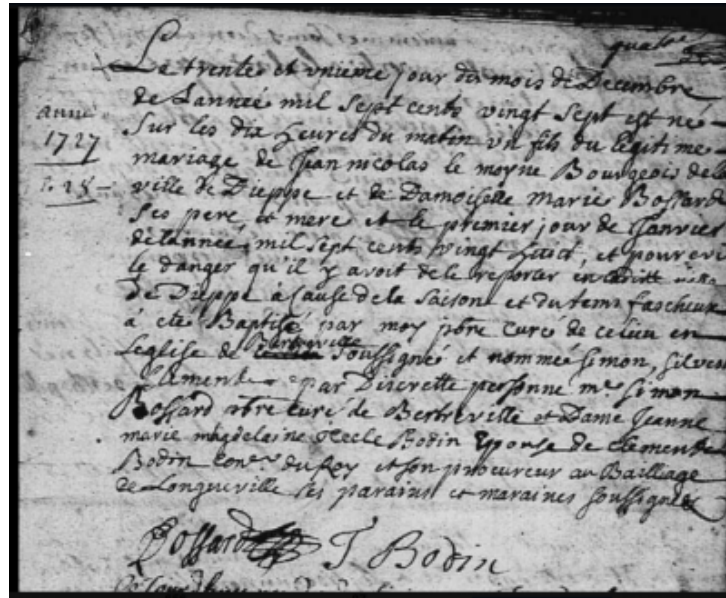 quatre
Le trente et unieme jour du mois de Decembre
de Lannée mil sept cents vingt sept est né
anné
1727
Sur les dix heures du matin un fils du légitime
mariage de Jean nicolas le moyne Bourgeois de la
28
ville de Dieppe et de Damoiselle Marie Bossard
Ses pere et mere et le premier jour de Janvier
de lannée mil sept cents vingt huict, et pour evi
le danger qu'il y avoit de le reporter en
de Dieppe à cause de la saison et du tems fascheux
à eté Baptisé par moy pbre curé de ce lieu en
Berteville
Leglise de soussigné et nommé simon, silves
Clement par Discrette personne mre. simon
Bossard pbre curé de Bertreville et Dame Jeanne
marie magdelaine Bodin epouse de clement
Bodin Coner. du Roy et son procureur au Bailliage
de Longueville ses parains et maraines soussignés
Bossard J Bodin